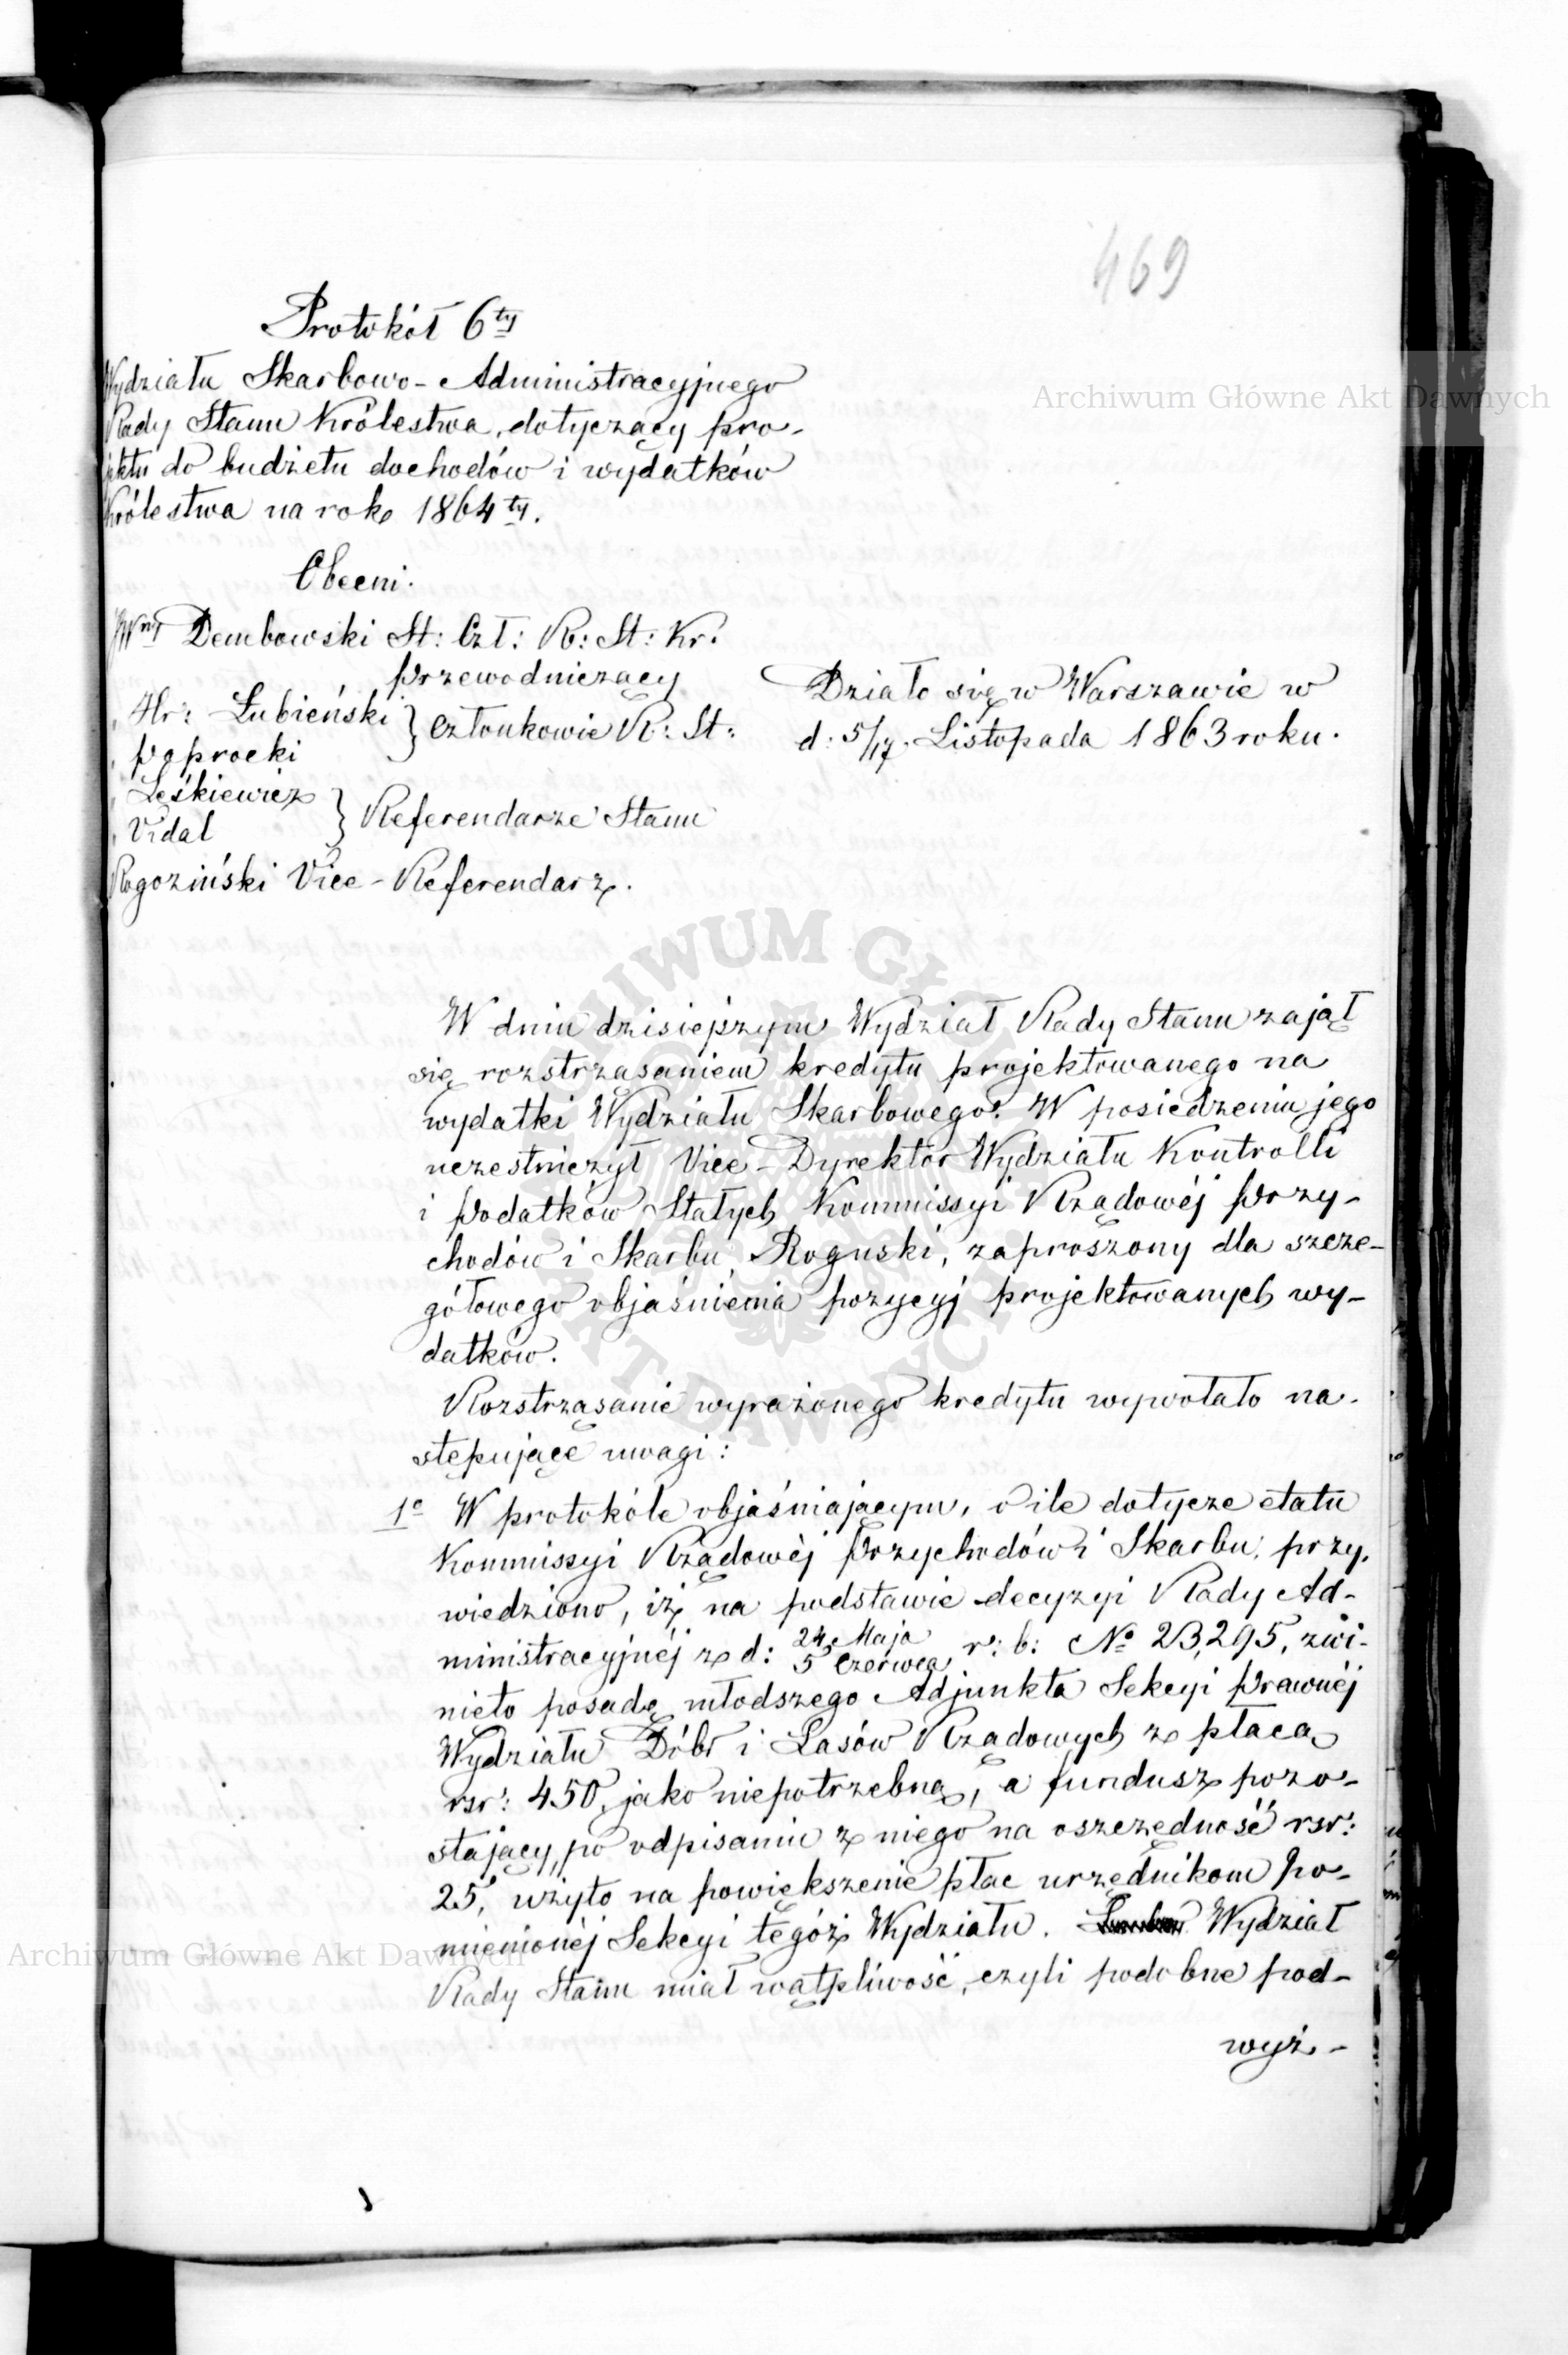 469
Protokół 6ty
Wydziału Skarbowo-Administracyjnego
Rady Stanu Królestwa, dotyczący pro-
jektu do budżetu dochodów i wydatków
Królestwa na rok 1864ty.
Obecni.
JWny Dembowski St: Czł: R: St: Kr:
Przewodniczący
Hr: Łubieński } Członkowie R: St:
Paprocki
Leśkiewicz } Referendarze Stanu
Vidal
Rogoziński Vice-Referendarz.
Działo się w Warszawie w
d: 5/17. Listopada 1863 roku.
W dniu dzisiejszym Wydział Rady Stanu zajął
się rozstrząsaniem kredytu projektowanego na
wydatki Wydziału Skarbowego. W posiedzeniu jego
uczestniczył Vice-Dyrektor Wydziału Kontrolli
i Podatków Stałych Kommissyi Rządowéj Przy-
chodów i Skarbu, Roguski, zaproszony dla szcze-
gółowego objaśnienia pozycyj projektowanych wy-
datków.
Rozstrząsanie wyrażonego kredytu wywołało na-
stępujące uwagi:
1o W protokóle objaśniającym, o ile dotycze etatu
Kommissyi Rządowéj Przychodów i Skarbu, przy-
wiedziono, iż na podstawie decyzyi Rady Ad-
ministracyjnéj z d: 24 Maja / 5 Czerwca r: b: No 23,295, zwi-
nięto posadę młodszego Adjunkta Sekcyi Prawnéj
Wydziału Dóbr i Lasów Rządowych z płacą
rsr: 450, jako niepotrzebną, a fundusz pozo-
stający, po odpisaniu z niego na oszczędność rsr:
25, użyto na powiększenie płac urzędnikom po-
mienionéj Sekcyi tegóż Wydziału. Wydział
Rady Stanu miał wątpliwość, czyli podobne pod-
wyż-
Archiwum Główne Akt Dawnych
Archiwum Główne Akt Dawnych
ARCHIWUM GŁÓWNE AKT DAWNYCH